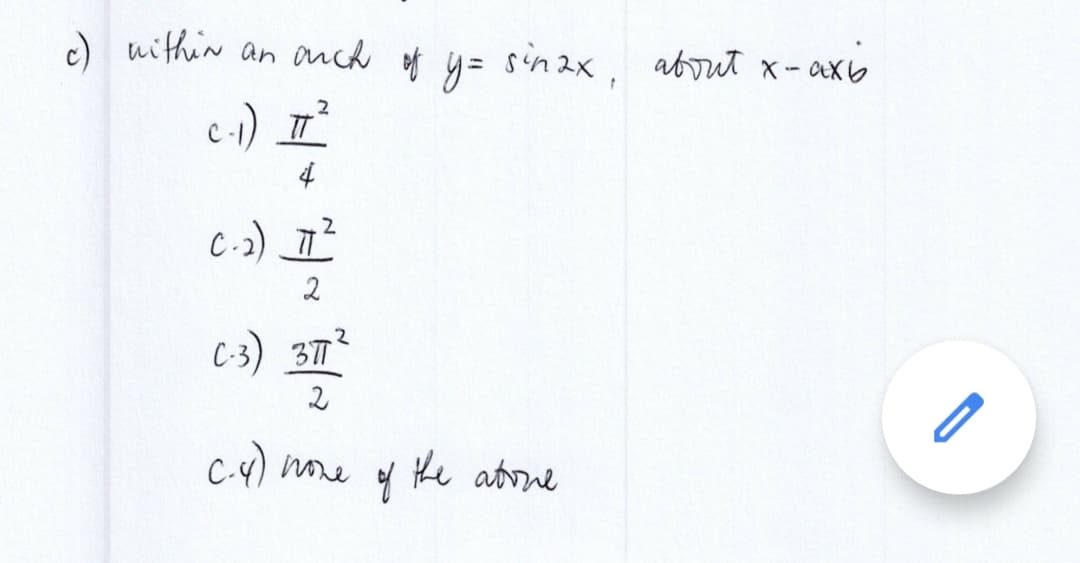 c) within an arch of y = sin 2x, about x-axis
c-1) π²/4
c-2) π²/2
c-3) 3π²/2
c-4) none of the above